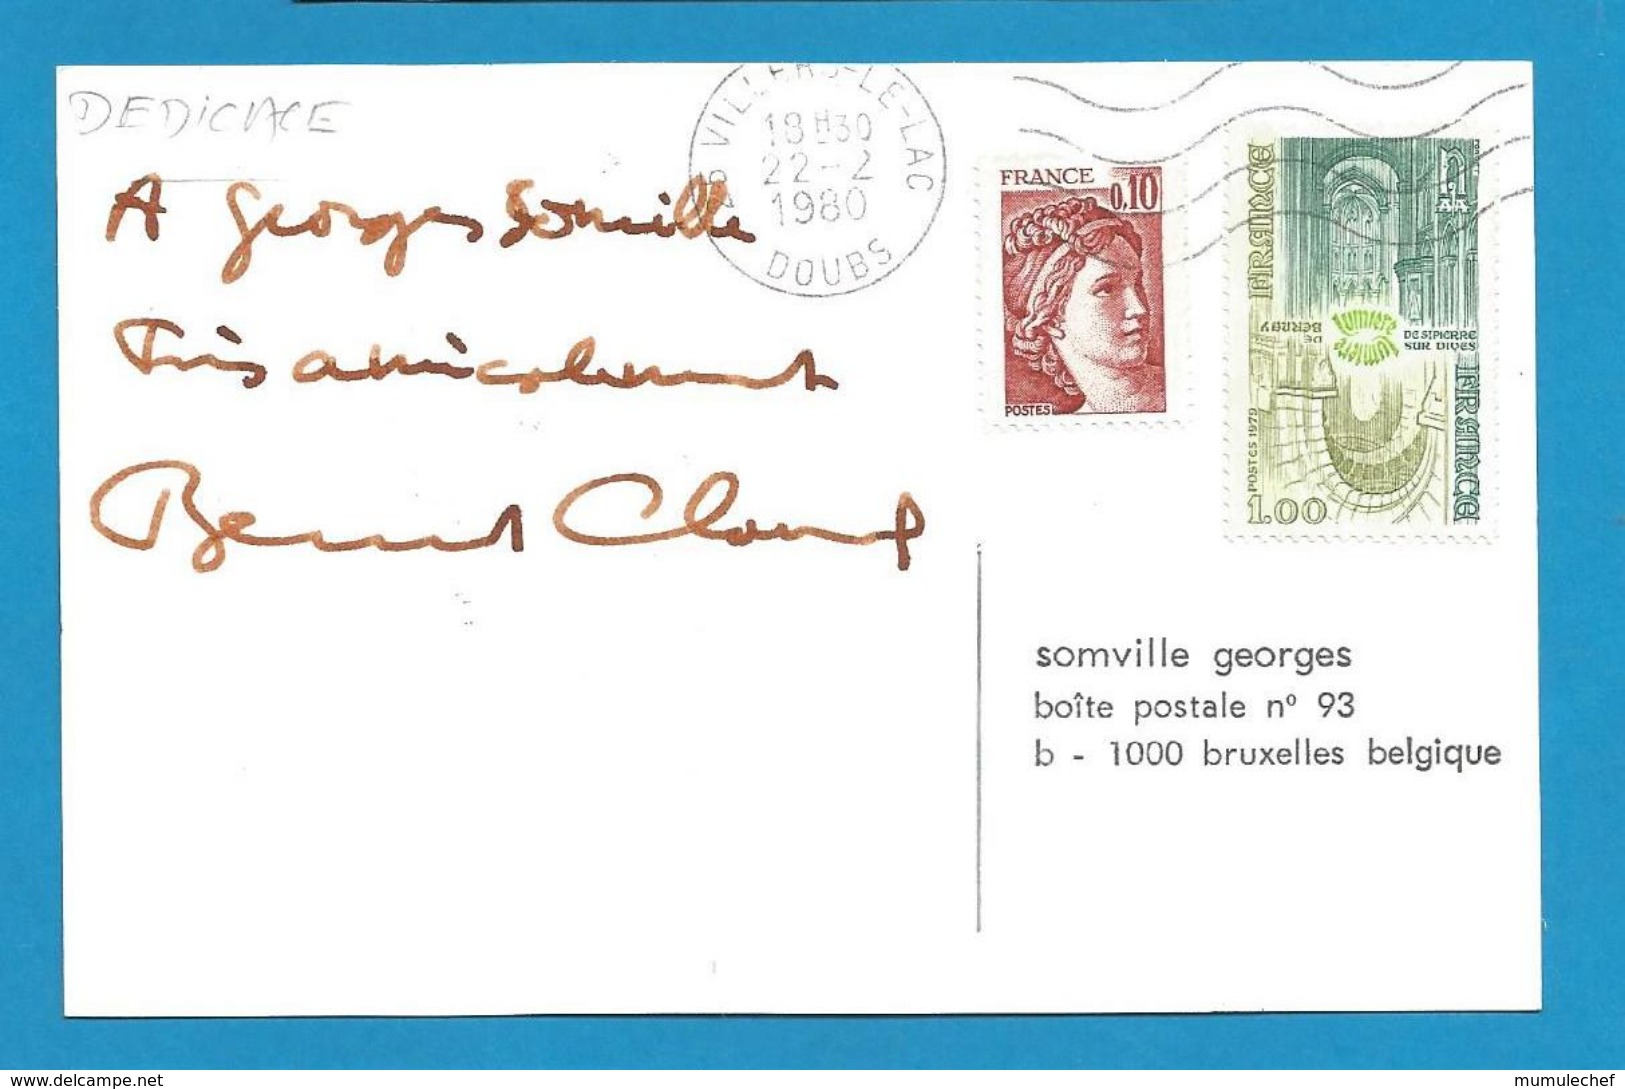 DEDICACE
A Georges Somville
Très amicalement
Bernard Clavel
VILLERS-LE-LAC
18H30
22-2
1980
DOUBS
FRANCE
0,10
POSTES
FRANCE
lumière
DE ST PIERRE
SUR DIVES
lumière
DE
BERNAY
FRANCE
POSTES 1979
1.00
somville georges
boîte postale nº 93
b - 1000 bruxelles belgique
delcampe.net
mumulechef